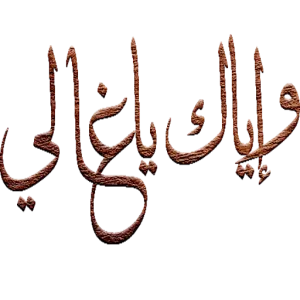 وإياك ياغالي